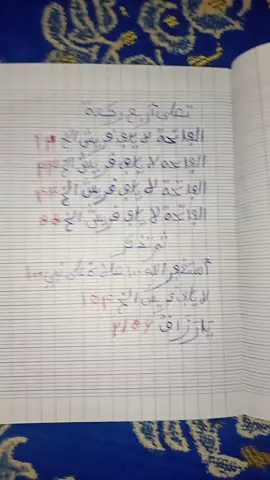 تصلى أربع ركعة
الفاتحة لايلاف قريش الخ ٢٢
الفاتحة لايلاف قريش الخ ٣٣
الفاتحة لايلاف قريش الخ ٤٤
الفاتحة لايلاف قريش الخ ٥٥
ثم تذكر
أستغفر الله ١٠٠ صلاة على نبي ١٠٠
لايلاف قريش الخ
يارزاق